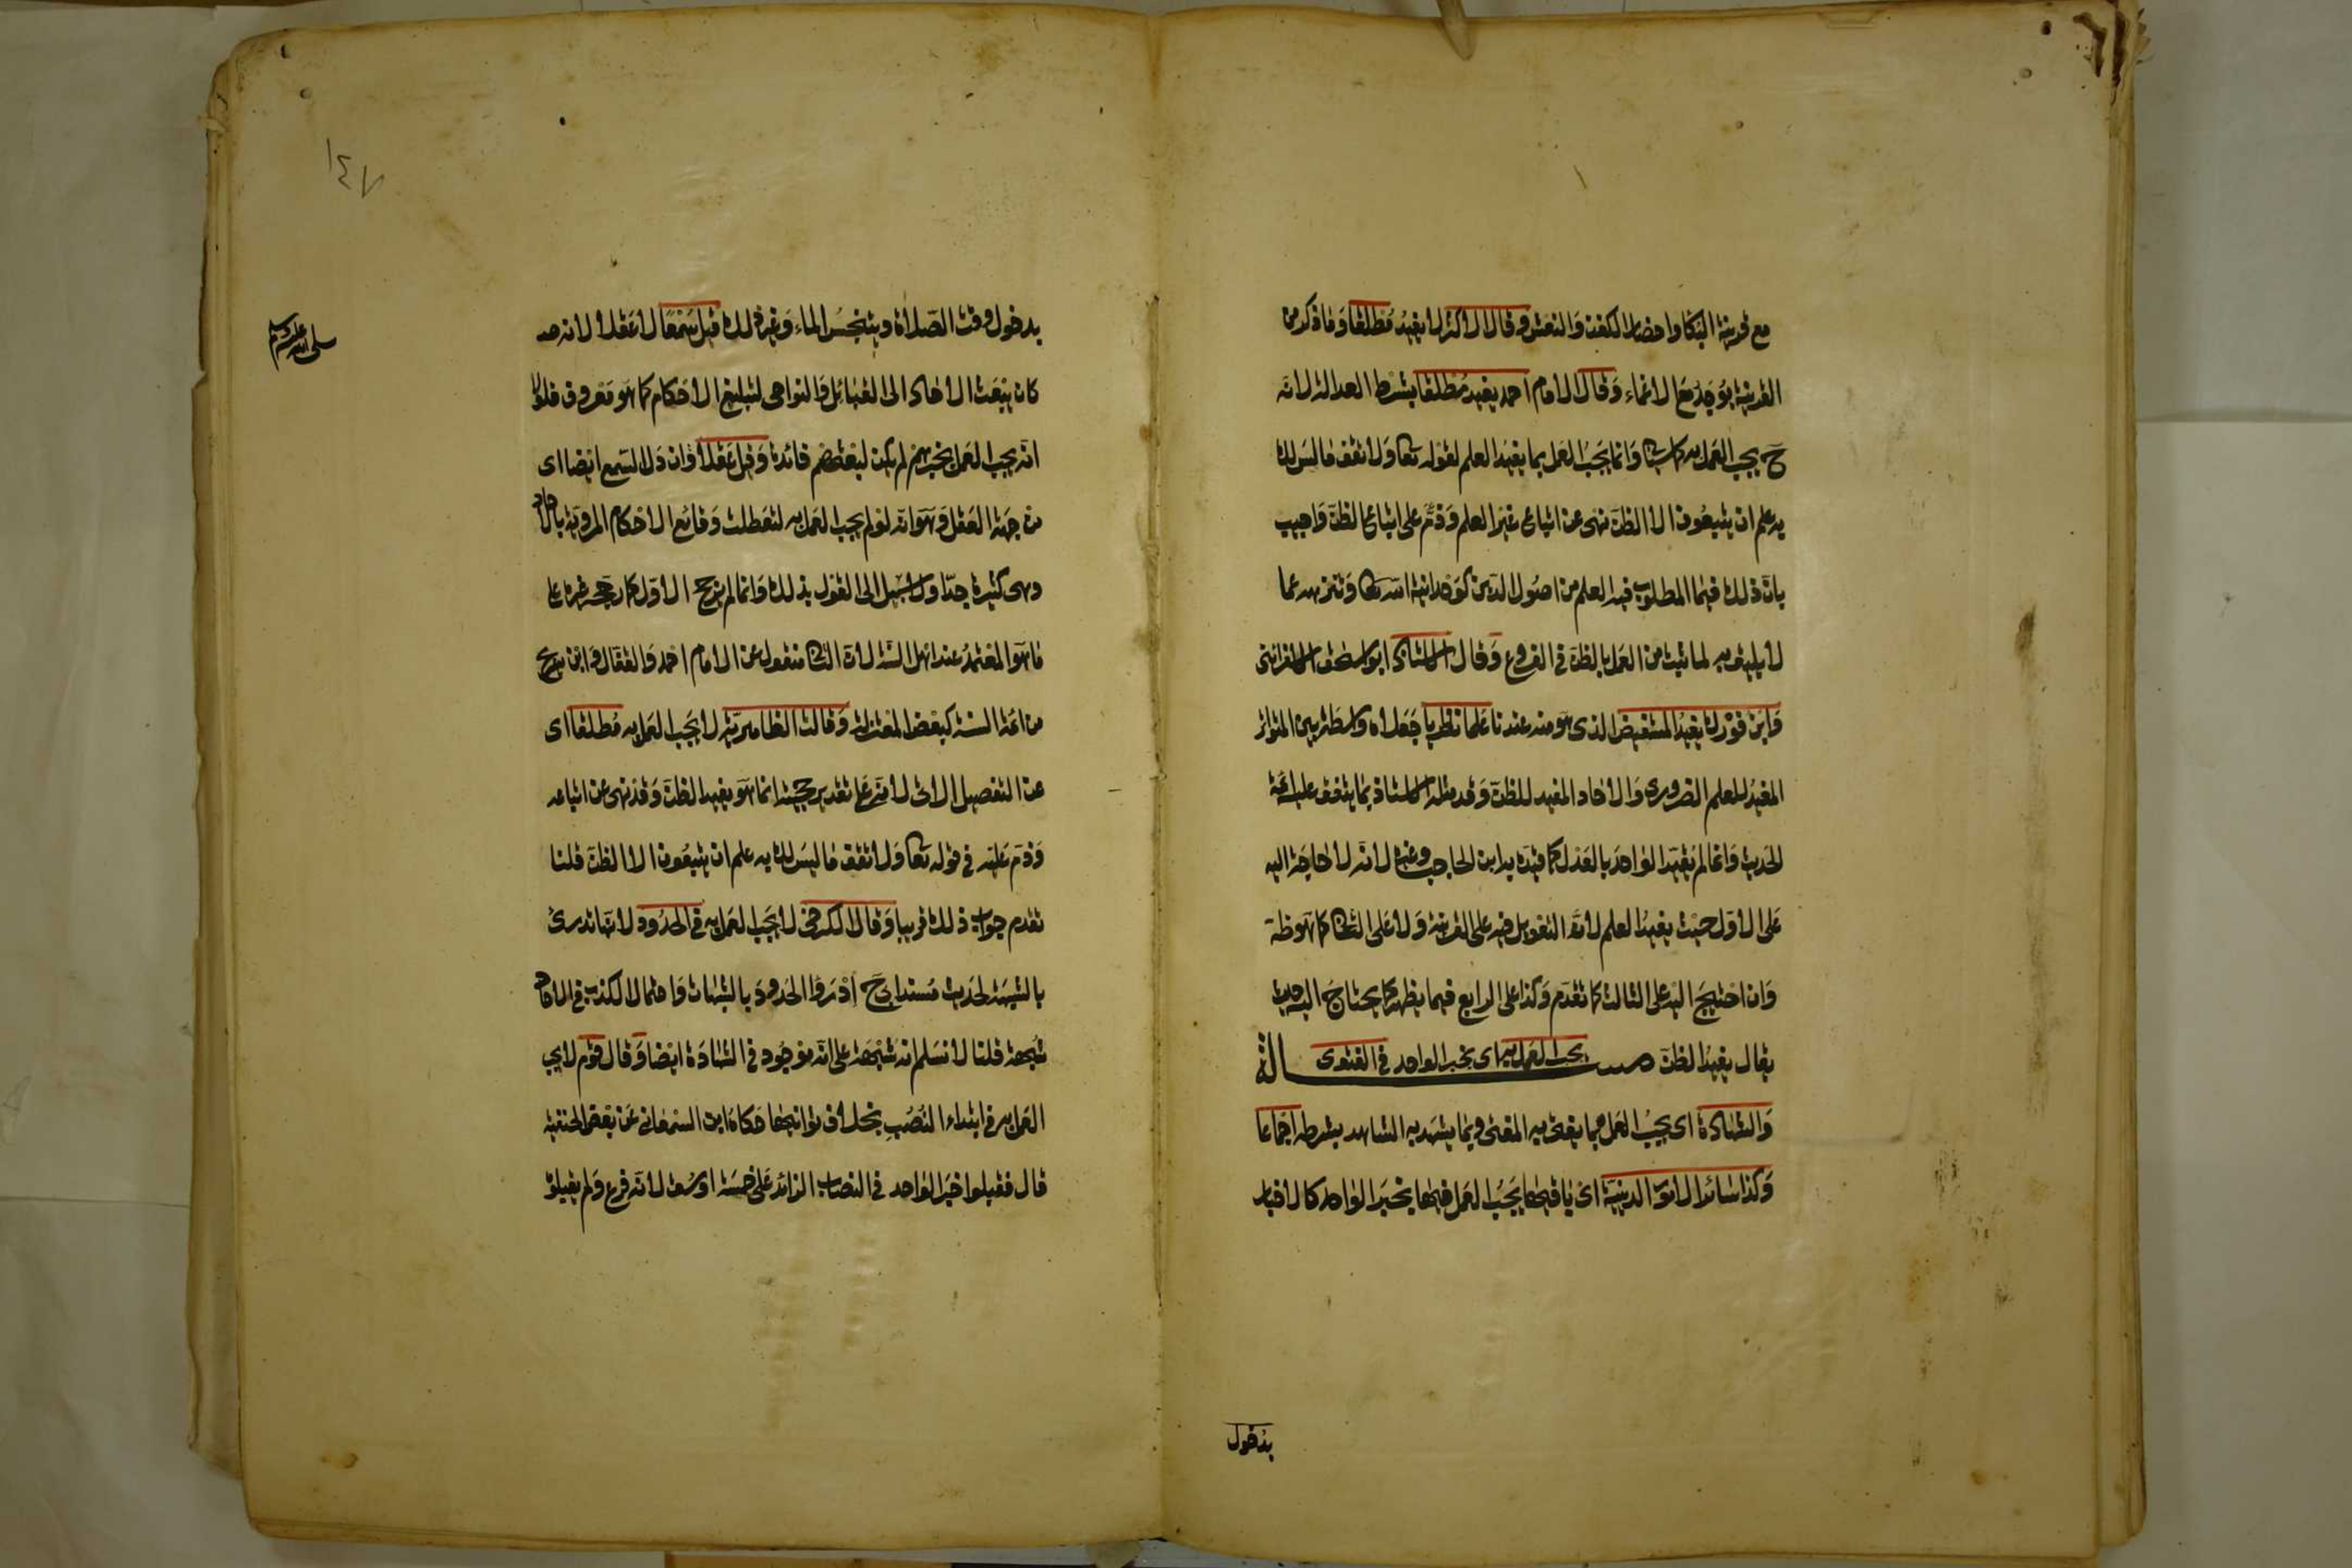 مع قرينة البكا واحضار الكفن والنعش وقال الاكثر لا يفيد مطلقا وما ذكر من
القرينة يوجد مع الاغماء وقال الامام احمد يفيد مطلقا بشرط العدالة لانه
ح يجب العمل به كما سياتي وانما يجب العمل بما يفيد العلم لقوله تعا ولا تقف ما ليس لك
به علم ان يتبعون الا الظن نهى عن اتباع غير العلم وذم على اتباع الظن واجيب
بان ذلك فيما المطلوب فيه العلم من اصول الدين كوحدانية الله تعا وتنزيهه عما
لا يليق به لما ثبت من العمل بالظن في الفروع وقال الاستاذ ابو اسحق الاسفراينى
وابن فورك يفيد المستفيض الذى هو منه عندنا علما نظريا جعلاه واسطة بين المتواتر
المفيد للعلم الضرورى والاحاد المفيد للظن وقد مثله الاستاذ بما يتفق عليه ائمة
الحديث وانما لم يقيد الواحد بالعدل كما قيده به ابن الحاجب وغيره لانه لا حاجة اليه
على الاول حيث يفيد العلم لان التعويل فيه على القرينة ولا على الثانى كما هو ظ
وان احتيج اليه على الثالث كما تقدم وكذا على الرابع فيما يظهر كما يحتاج اليه حيث
يقال يفيد الظن مسـالة يجب العمل به اى بخبر الواحد في الفتوى
والشهادة اى يجب العمل بما يفتى به المفتى وبما يشهد به الشاهد بشرطه اجماعا
وكذا سائر الامور الدينية اى باقيها يجب العمل فيها بخبر الواحد كالاخبار
بدخول
١٤٧
بدخول وقت الصلاة وبتنجس الماء وغير ذلك قيل سمعا لا عقلا لانه صـ
صلى الله عليه وسلم
كان يبعث الاحاد الى القبائل والنواحى لتبليغ الاحكام كما هو معروف فلولا
انه يجب العمل بخبرهم لم يكن لبعثهم فائدة وقيل عقلا وان دل السمع ايضا اى
من جهة العقل وهو انه لو لم يجب العمل به لتعطلت وقائع الاحكام المروية بالاحاد
وهى كثيرة جدا ولا سبيل الى القول بذلك وانما لم يرجح الاول كما رجحه غيره على
ما هو المعتمد عند اهل السنة لان الثانى منقول عن الامام احمد والقفال وابن سريج
من ائمة السنة كبعض المعتزلة وقالت الظاهرية لا يجب العمل به مطلقا اى
عن التفصيل الاتى لانه على تقدير حجيته انما هو يفيد الظن وقد نهى عن اتباعه
وذم عليه في قوله تعا ولا تقف ما ليس لك به علم ان يتبعون الا الظن قلنا
تقدم جواب ذلك قريبا وقال الكرخى لا يجب العمل به في الحدود لانها تدرئ
بالشبهة لحديث مسند ابى ح ادرؤا الحدود بالشبهات واحتمال الكذب في الاحاد
شبهة قلنا لا نسلم انه شبهة على انه موجود في الشهادة ايضا وقال قوم لا يجب
العمل به في ابتداء النصب بخلاف ثوانيها حكاه ابن السمعانى عن بعض الحنفية
قال فقبلوا خبر الواحد في النصاب الزائد على خمسة اوسق لانه فرع ولم يقبلوا